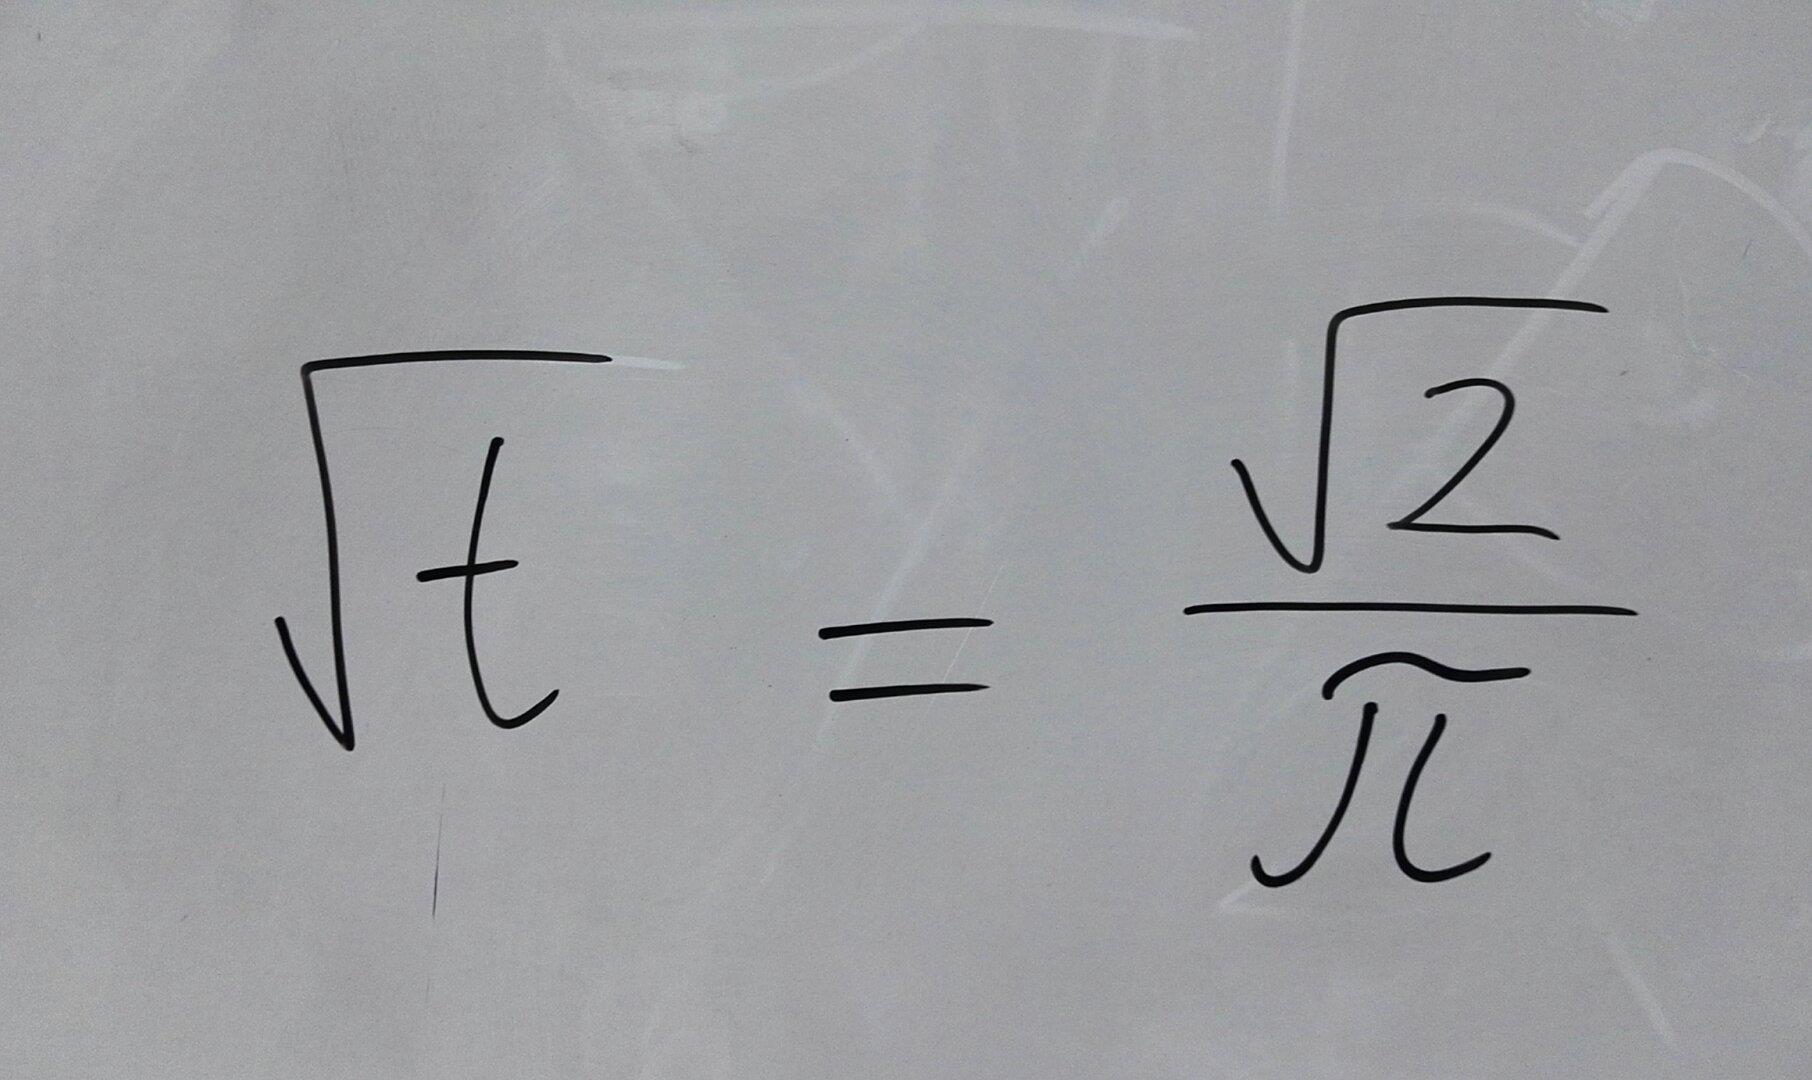 √t = √2/π